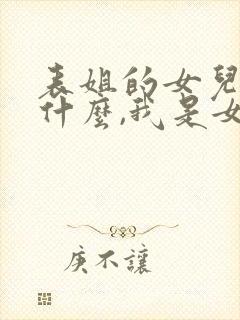 表姐的女兒
什麼,我是女
庚不讓